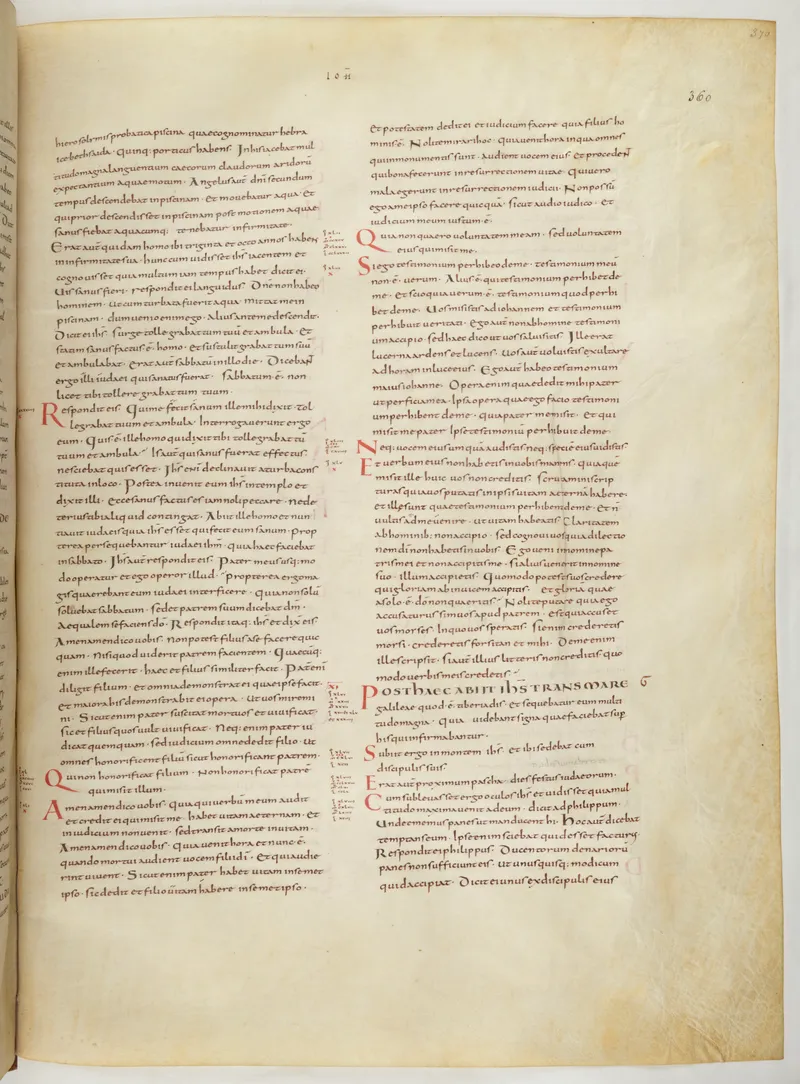 IOH
370
360
hierosolimis probatica piscina quae cognominatur hebra
ice bethsaida · quinq; porticus habens · In his iacebat mul
titudo magna languentium caecorum claudorum aridorū
expectantium aquae motum · Angelus aūt dn̄i secundum
tempus descendebat in piscinam · et mouebatur aqua · Et
qui prior descendisset in piscinam post motionem aquae ·
sanus fiebat a quacumq; tenebatur infirmitate ·
Erat aūt quidam homo ibi triginta et octo annos habens
in infirmitate sua · hunc cum uidisset ihs̄ iacentem et
cognouisset quia multum iam tempus habet dicit ei ·
Uis sanus fieri · respondit ei languidus · Dn̄e non habeo
hominem · ut cum turbata fuerit aqua · mittat me in
piscinam · dum uenio enim ego · alius ante me descendit ·
Dicit ei ihs̄ · surge tolle grabattum tuū et ambula · Et
statim sanus factus ē · homo · et sustulit grabattum suū
et ambulabat · erat aūt sabbatū in illo die · Dicebant
ergo illi iudaei qui sanatus fuerat · sabbatum · ē · non
licet tibi tollere grabattum tuum ·
Respondit eis · Qui me fecit sanum ille mihi dixit · tol
le grabattum tuum et ambula · Interrogauerunt ergo
eum · Quis · ē · ille homo qui dixit tibi tolle grabattū
tuum et ambula · Is aūt qui sanus fuerat effectus
nesciebat quis esset · Ihs̄ enī declinauit a turba cons
tituta in loco · Postea inuenit eum ihs̄ in templo et
dixit illi · ecce sanus factus es iam noli peccare · ne de
terius tibi aliquid contingat · Abiit ille homo et nun
tiauit iudaeis quia ihs̄ esset qui fecit eum sanum · prop
terea persequebantur iudaei ihm̄ · quia haec faciebat
in sabbato · Ihs̄ aūt respondit eis · Pater meus usq; mo
do operatur et ego operor illud · propterea ergo ma
gis quaerebant eum iudaei interficere · quia non solū
soluebat sabbatum · sed et patrem suum dicebat dm̄ ·
Aequalem se faciens dō · Respondit itaq; ihs̄ et dixit eis ·
Amen amen dico uobis · non potest filius a se facere quic
quam · nisi quod uiderit patrem facientem · Quaecūq;
enim ille fecerit · haec et filius similiter facit · Pater enī
diligit filium · et omnia demonstrat ei quae ipse facit ·
et maiora his demonstrabit ei opera · ut uos miremi
ni · Sicut enim pater suscitat mortuos et uiuificat ·
sic et filius quos uult uiuificat · Neq; enim pater iu
dicat quemquam · sed iudicium omne dedit filio · ut
omnes honorificent filiū sicut honorificant patrem ·
Qui non honorificat filium · Non honorificat patrē
qui misit illum ·
Amen amen dico uobis · quia qui uerbū meum audit
et credit ei qui misit me · habet uitam aeternam · et
in iudicium non uenit · sed transit a morte in uitam ·
Amen amen dico uobis · quia uenit hora et nunc · ē ·
quando mortui audient uocem filii dī · Et qui audie
rint uiuent · Sicut enim pater habet uitam in semet
ipso · sic dedit et filio uitam habere in semet ipso ·
et potestatem dedit ei et iudicium facere quia filius ho
minis · ē · Nolite mirari hoc · quia uenit hora in qua omnes
qui in monumentis sunt · audient uocem eius et procedent
qui bona fecerunt in resurrectionem uitae · Qui uero
mala egerunt in resurrectionem iudicii · Non possū
ego a me ipso facere quicquā · sicut audio iudico · et
iudicium meum iustum · ē ·
Quia non quaero uoluntatem meam · sed uoluntatem
eius qui misit me ·
Si ego testimonium perhibeo de me · testimonium meū
non · ē · uerum · Alius · ē · qui testimonium perhibet de
me · et scio quia uerum · ē · testimonium quod perhi
bet de me · Uos misistis ad iohannem et testimonium
perhibuit ueritati · Ego aūt non ab homine testimoni
um accipio · sed haec dico ut uos salui sitis · Ille erat
lucerna ardens et lucens · Uos aūt uoluistis exultare
ad horam in luce eius · Ego aūt habeo testimonium
maius iohanne · Opera enim quae dedit mihi pater
ut perficiam ea · Ipsa opera quae ego facio testimoni
um perhibent de me · quia pater me misit · Et qui
misit me pater ipse testimoniū perhibuit de me ·
Neq; uocem eius umquā audistis neq; speciē eius uidistis
Et uerbum eius non habetis in uobis manens · quia quē
misit ille huic uos non creditis · scrutamini scrip
turas quia uos putatis in ipsis uitam aeternā habere ·
et illae sunt quae testimonium perhibent de me · et n
uultis ad me uenire · ut uitam habeatis · Claritatem
ab hominib; non accipio · sed cognoui uos quia dilectio
nem dī non habetis in uobis · Ego ueni in nomine pa
tris mei et non accipitis me · si alius uenerit in nomine
suo · illum accipietis · Quomodo potestis uos credere
qui gloriam ab inuicem accipitis · et gloria quae
a solo · ē · dō non quaeritis · Nolite putare quia ego
accusaturus sim uos apud patrem · est qui accuset
uos moyses · in quo uos speratis · si enim crederetis
moysi · crederetis forsitan et mihi · De me enim
ille scripsit · si aūt illius litteris non creditis quo
modo uerbis meis credetis ·
POST HAEC ABIIT IHS̄ TRANS MARE
galileae quod · ē · tiberiadis · et sequebatur eum multi
tudo magna · quia uidebant signa quae faciebat sup
his qui infirmabantur ·
Subiit ergo in montem ihs̄ · et ibi sedebat cum
discipulis suis ·
Erat aūt proximum pascha · dies festus iudaeorum ·
Cum subleuasset ergo oculos ihs̄ et uidisset quia mul
titudo maxima uenit ad eum · dicit ad philippum ·
Unde ememus panes ut manducent hi · Hoc aūt dicebat
temptans eum · Ipse enim sciebat quid esset facturus ·
Respondit ei philippus · Ducentorum denariorū
panes non sufficiunt eis · ut unusquisq; modicum
quid accipiat · Dicit ei unus ex discipulis eius